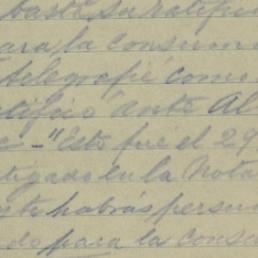 basta su ratifi
para la consum
telegrafié como
tificó ante Al
e - "Esto fué el 29
tigado en la Nota
y te habrás persua
do para la consu